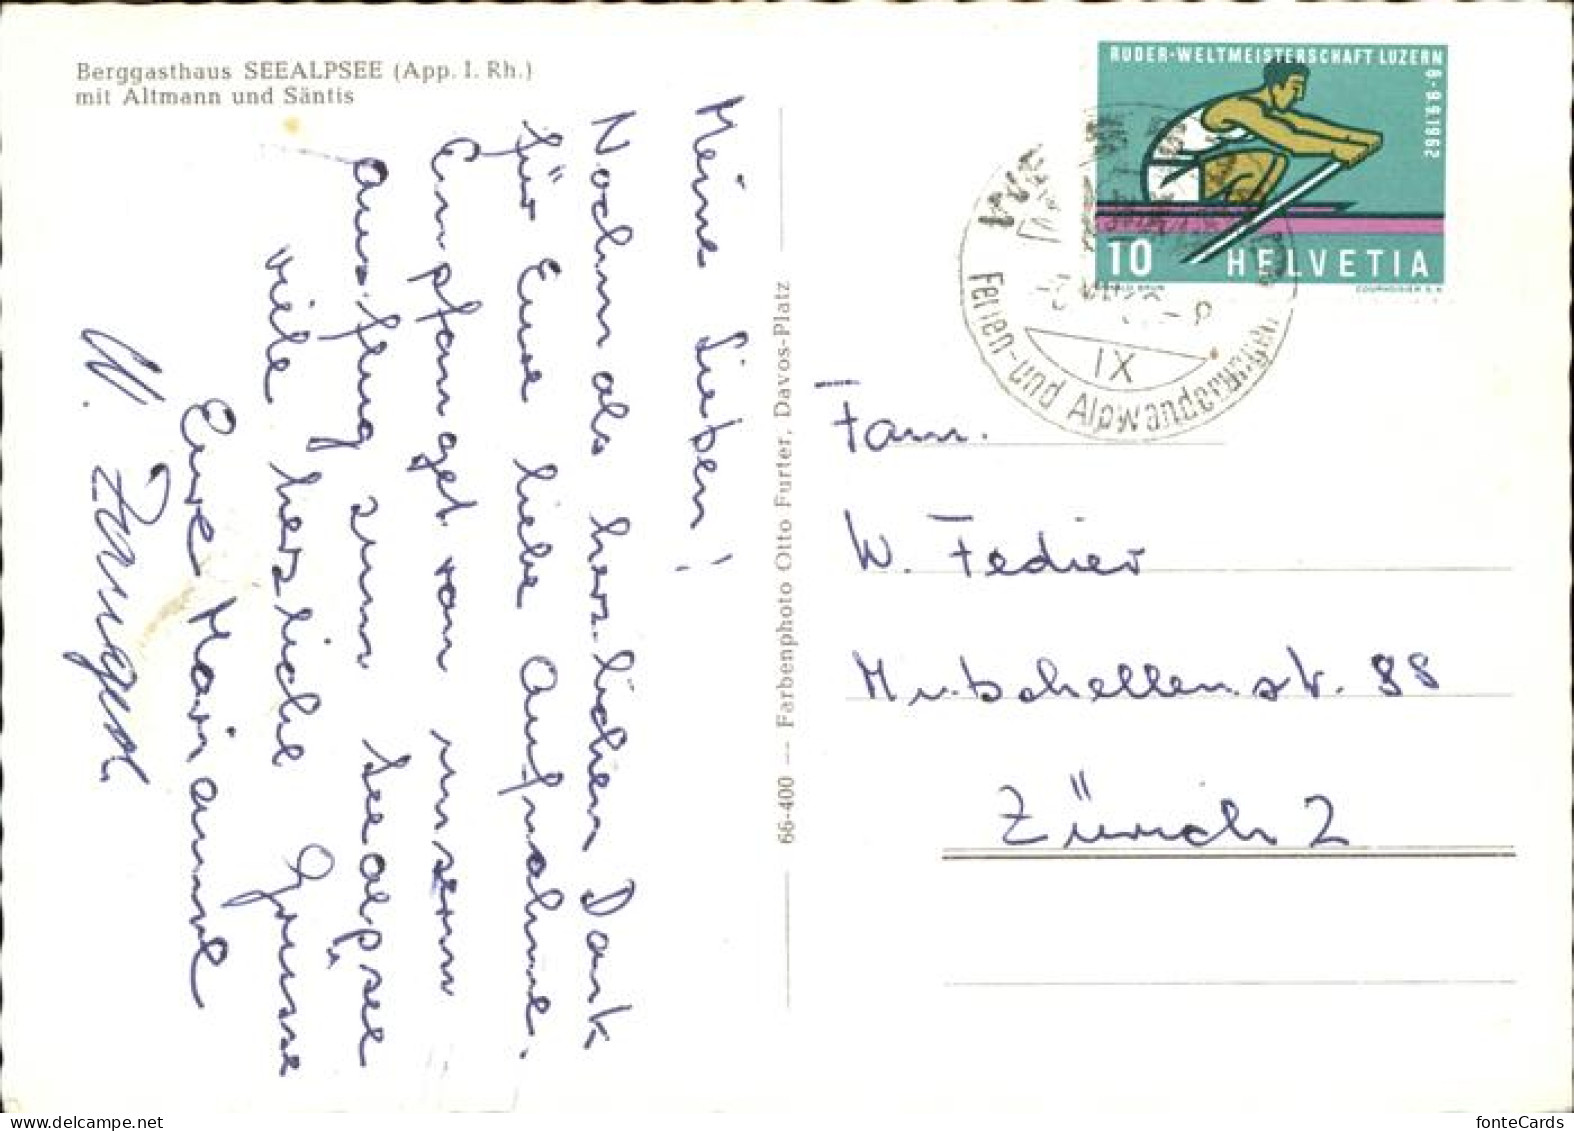 Berggasthaus SEEALPSEE (App. I. Rh.)
mit Altmann und Säntis
Meine Lieben!
Nochm als herzlichen Dank
für Eure liebe Aufnahme.
Empfanget vom unserm
Ausflug zum Seealpsee
viele herzliche Grüsse
Eure Marianne
W.
66-400 — Farbenphoto Otto Furter, Davos-Platz
RUDER-WELTMEISTERSCHAFT LUZERN
6.-9.9.1962
10 HELVETIA
COURVOISIER S.A.
Ferien- und Alpwanderungen
IX
Fam.
W. Fedier
Mutschellenstr. 88
Zürich 2
fonteCards